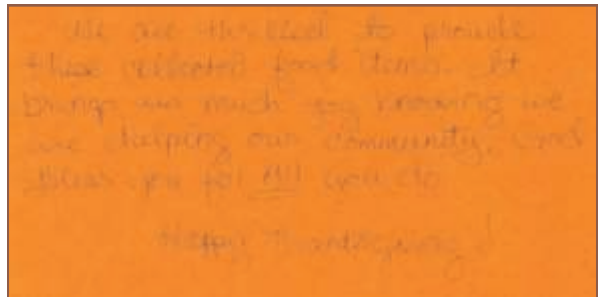 We are thrilled to provide
these collected food items. It
brings us much joy knowing we
are helping our community. God
bless you for All you do
Happy Thanksgiving!